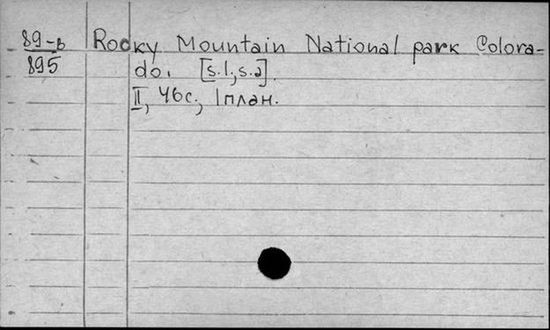 89-в Rocky Mountain National park Colora-
895 do. [s.l, s.a].
II, 46с., 1план.